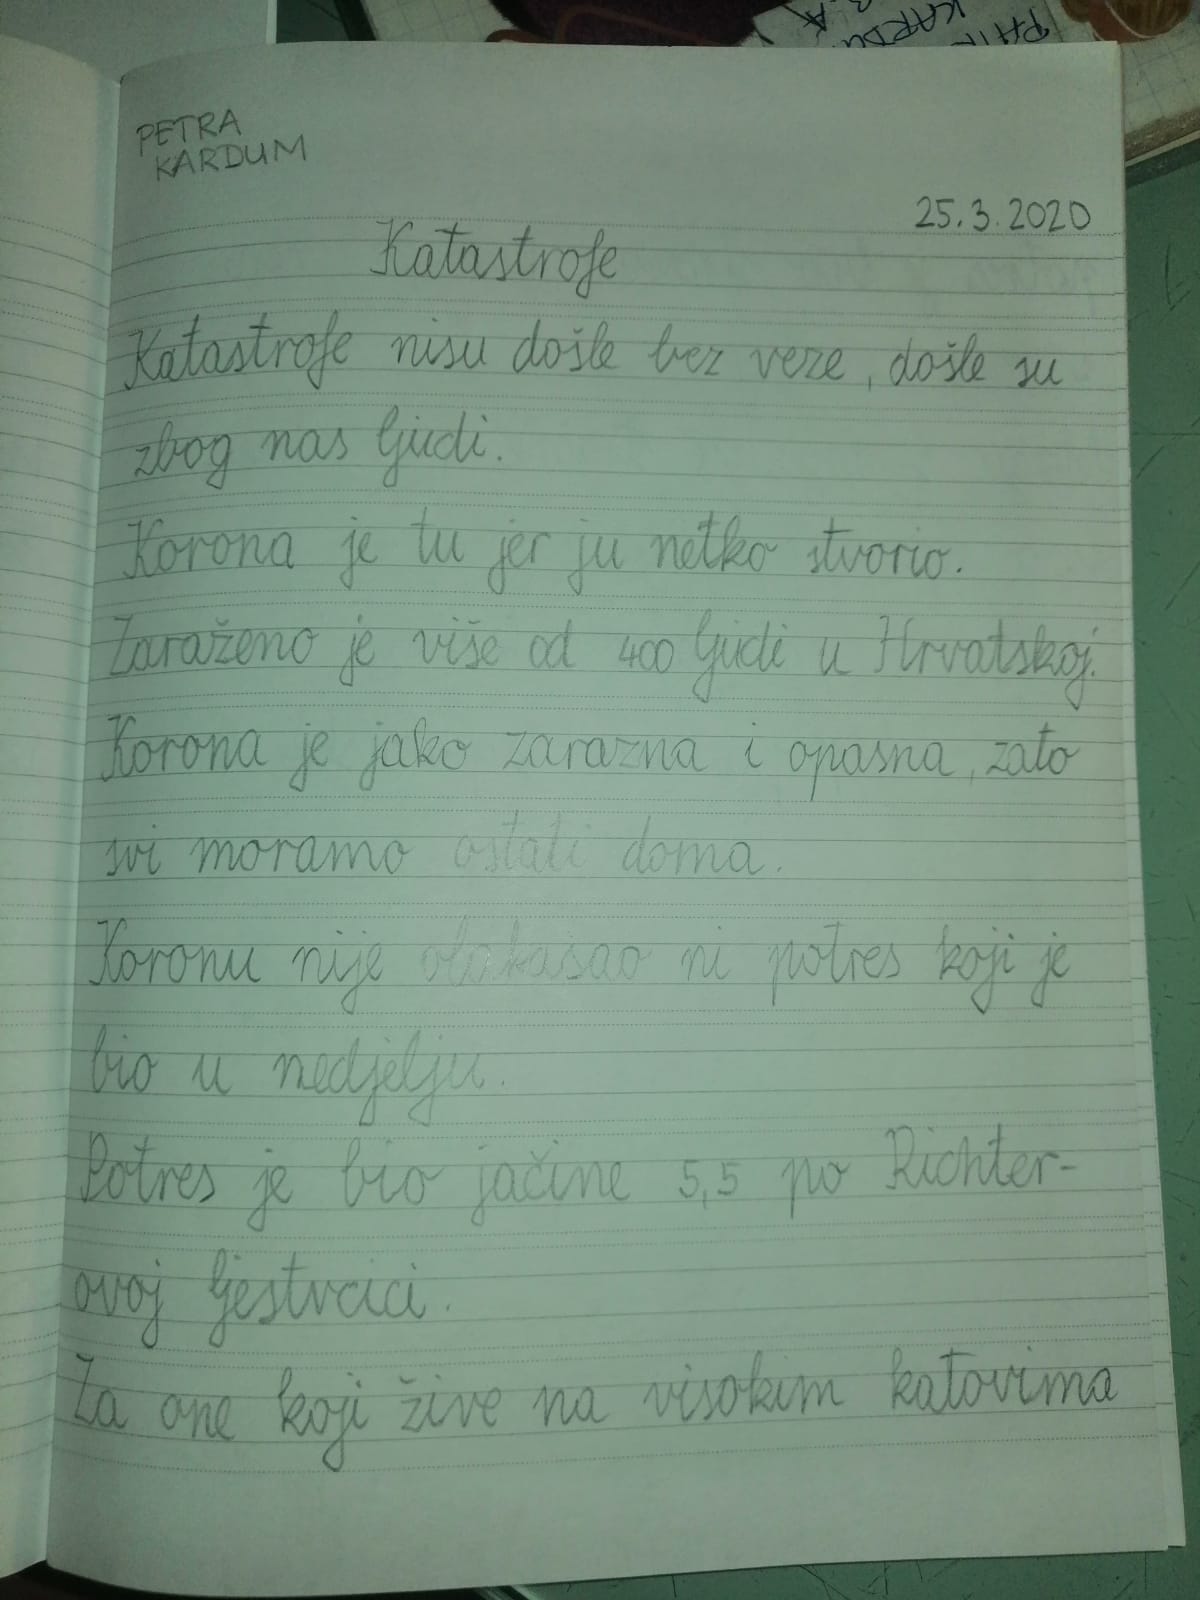 PETRA
KARDUM
25.3.2020
Katastrofe
Katastrofe nisu došle bez veze, došle su
zbog nas ljudi.
Korona je tu jer ju netko stvorio.
Zaraženo je više od 400 ljudi u Hrvatskoj.
Korona je jako zarazna i opasna, zato
svi moramo ostati doma.
Koronu nije ni potres koji je
bio u nedjelju.
Potres je bio jačine 5,5 po Richter-
ovoj ljestvcici.
Za one koji žive na visokim katovima